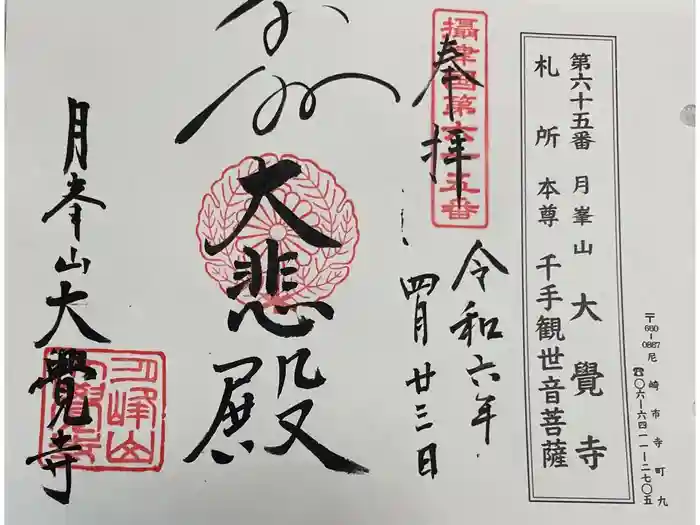 第六十五番 月峯山 大覺寺
札所本尊 千手観世音菩薩
〒660-0867 尼崎市寺町九
☎〇六-六四一一-二七〇五
攝津国第六十五番
奉拝
令和六年
四月廿三日
大悲殿
月峯山大覺寺